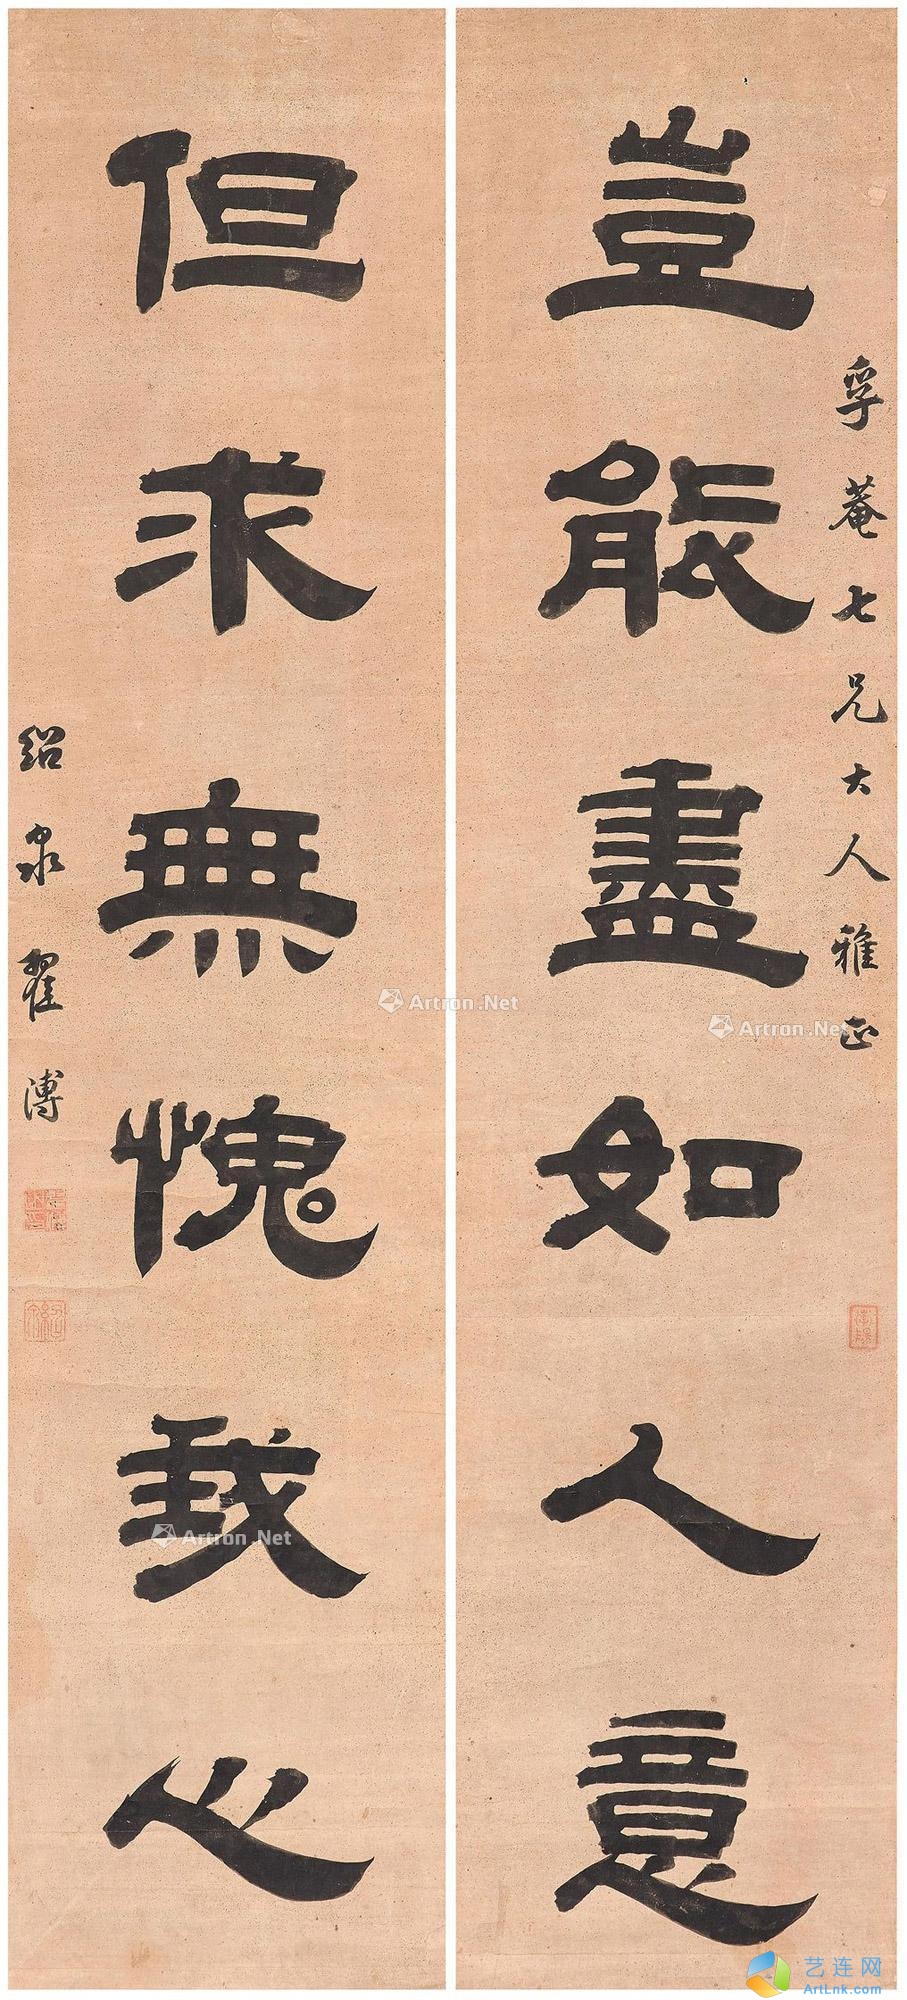 孚菴七兄大人雅正
豈能盡如人意
但求無愧我心
紹泉翟溥
Artron.Net
Artron.Net
Artron.Net
艺连网
ArtLnk.com